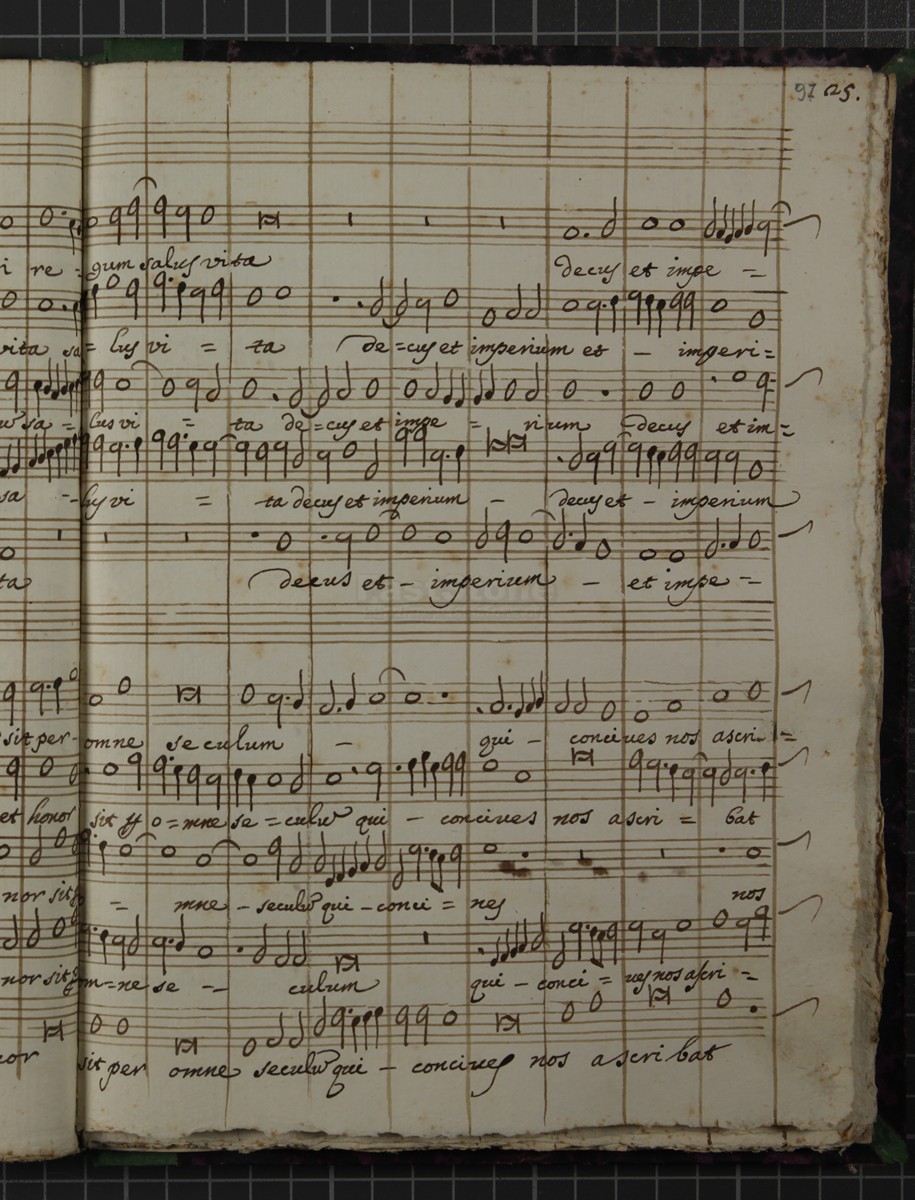 97 25.
i re = gum salus vita decus et impe =
vita sa= lus vi = ta de=cus et imperium et - imperi=
sa = lus vi = ta de=cus et impe = rium decus et im=
sa - lus vi = ta decus et imperium - decus et - imperium
ta decus et - imperium - et impe =
sit per- omne seculum - qui - conciues nos ascri=
et honor sit o=mne se=culū qui - conciues nos ascri = bat
nor sit = mne - seculū qui - conci = ues nos
nor sit m=ne se - culum qui - conci = ues nos ascri =
sit per omne seculū qui - conciues nos ascribat